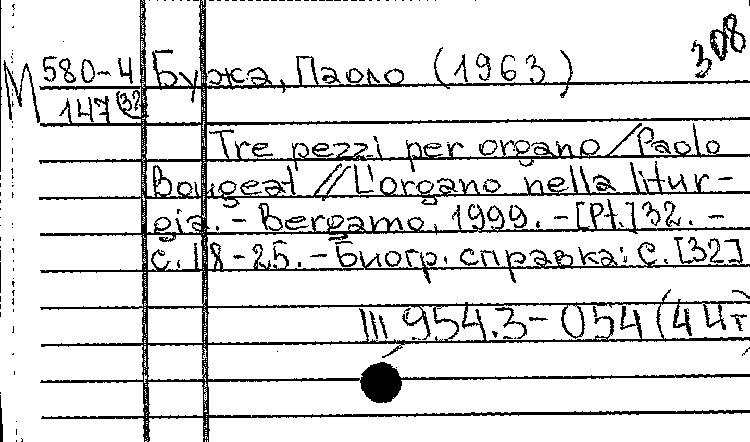 308
М 580-4 Бужа, Паоло (1963)
147(32)
Tre pezzi per organo / Paolo
Bougeat // L'organo nella litur-
gia. - Bergamo, 1999. - [Pt.] 32. -
с. 18-25. - Биогр. справка: с. [32]
III 954.3-054 (4 Ит)